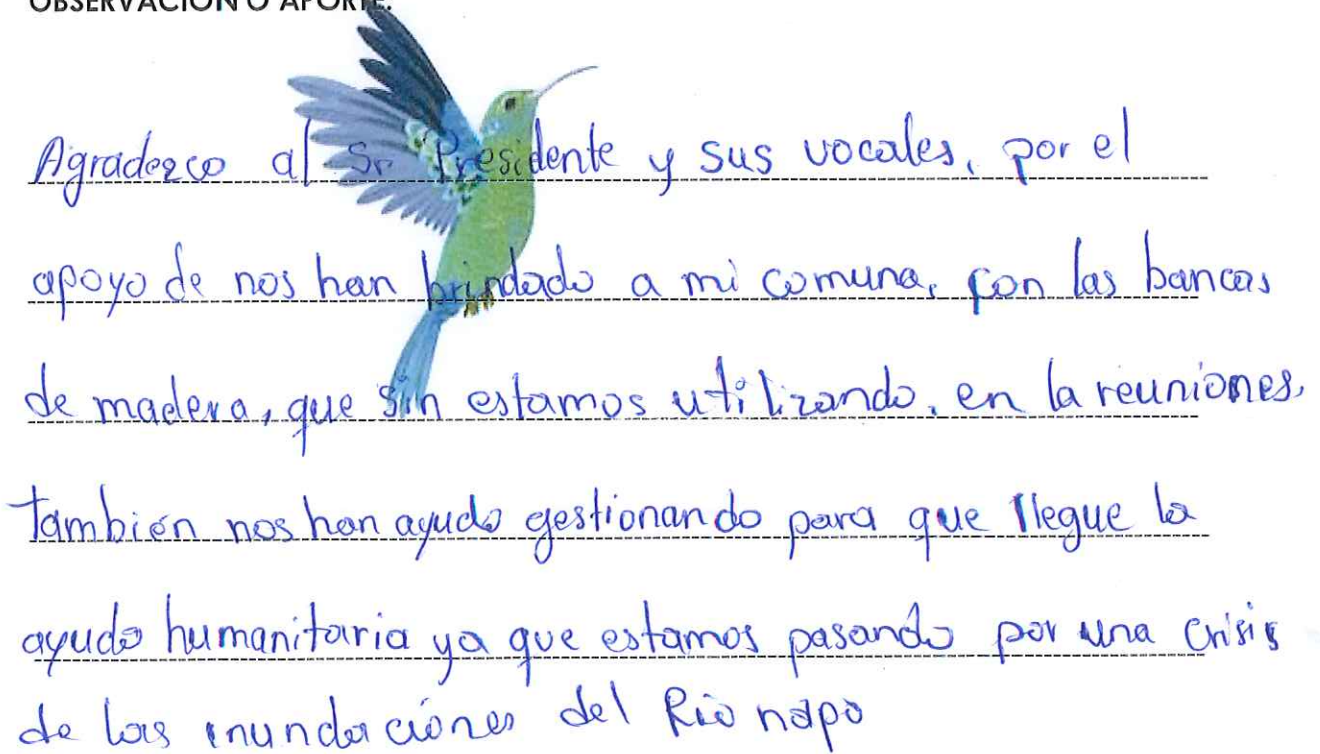 OBSERVACIÓN O APORTE:
Agradezco al Sr Presidente y sus vocales, por el
apoyo de nos han brindado a mi comuna, con las bancas
de madera, que sin estamos utilizando, en la reuniones,
también nos han ayudo gestionando para que llegue la
ayuda humanitaria ya que estamos pasando por una crisis
de las inundaciones del Río napo